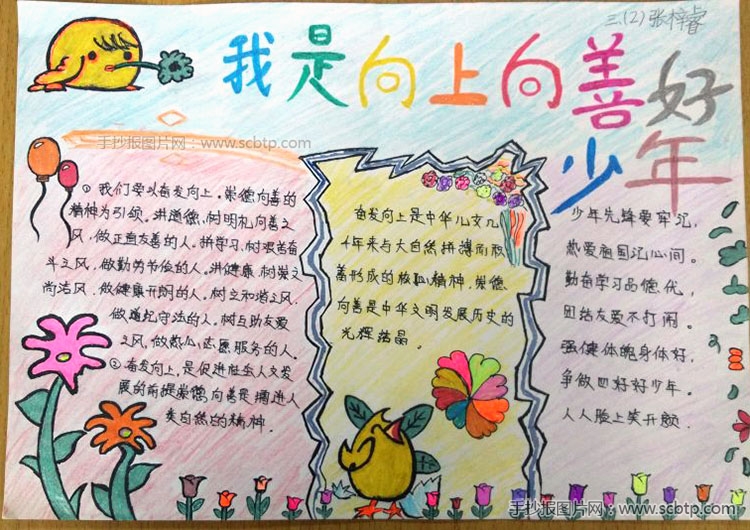 三.(2)张梓睿
我是向上向善好
少年
手抄报图片网:www.scbtp.com
①我们要以奋发向上,崇德向善的
精神为引领。讲道德,树明礼向善之
风,做正直友善的人。拼学习,树艰苦奋
斗之风,做勤劳节俭的人。讲健康,树崇文
尚洁风,做健康开朗的人。树立和谐之风,
做遵纪守法的人。树互助友爱
之风,做热心志愿服务的人。
②奋发向上,是促进社会人文发
展的前提崇德向善是推进人
类自然的精神.
奋发向上是中华儿女几
千年来与大自然拼搏而积
蓄形成的核心精神,崇德
向善是中华文明发展历史的
光辉结晶.
少年先锋要牢记,
热爱祖国记心间。
勤奋学习品德优,
团结友爱不打闹。
强健体魄身体好,
争做四好好少年。
人人脸上笑开颜.
手抄报图片网:www.scbtp.com